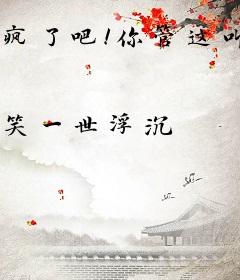 疯了吧!你管这叫
笑一世浮沉